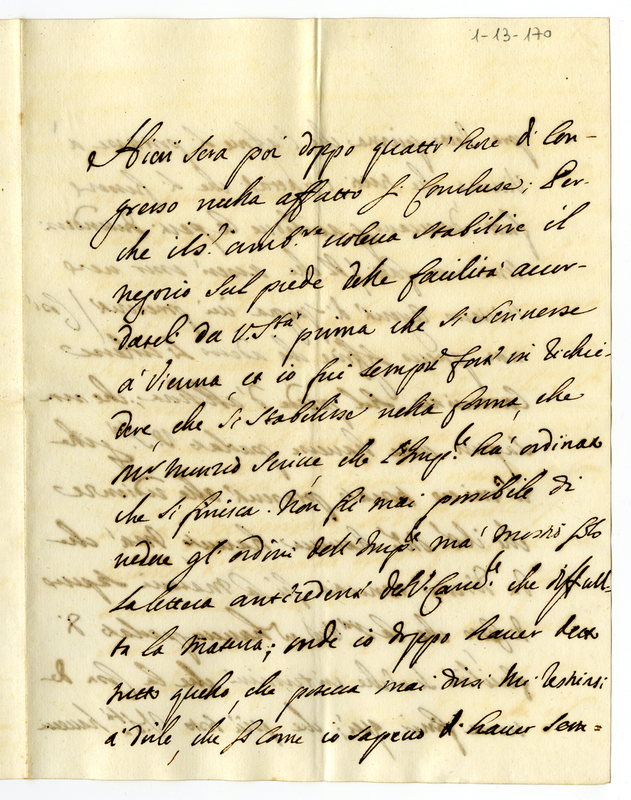 1-13-170
Hieri sera poi doppo quattr'hore di Con-
gresso nulla affatto si Concluse; Per-
che il S.r Amb.re voleua stabilire il
negozio sul piede delle facilità accor-
dateli da V. S.tà prima che si scriuesse
à Vienna, et io fui sempre forte in richie-
dere, che si stabilisse nella forma, che
Mr Nunzio scriue, che l'Imp.re hà ordinato
che si finisca. Non fù mai possibile di
vedere gl'ordini dell'Imp.re mà mostrò solo
la lettera antecedente del S.r Card.le che difficul-
ta la materia; onde io doppo hauer detto
tutto quello, che poteua mai dirsi mi restrinsi
à dirle, che si come io sapeuo di hauer sem=